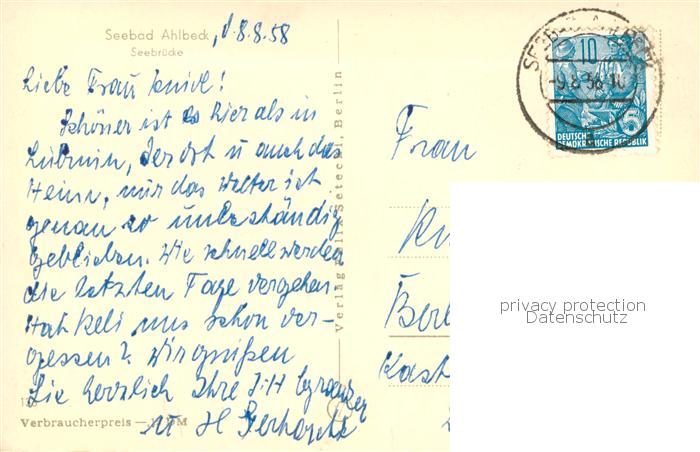 Seebad Ahlbeck, d. 8.8.58
Seebrücke
Liebe Frau
Schöner ist es hier als in
Lubmin, der Ort u auch das
Heim, nur das Wetter ist
genau so unbeständig
geblieben. Wie schnell werden
die letzten Tage vergehen.
Hat uns schon ver-
gessen? Wir grüßen
Sie herzlich Ihre
u H
Verbraucherpreis — DM
Berlin
Frau
Ku
Berl
Kast
10
DEUTSCHE
DEMOKRATISCHE REPUBLIK
5
-9.8.58.10
privacy protection
Datenschutz